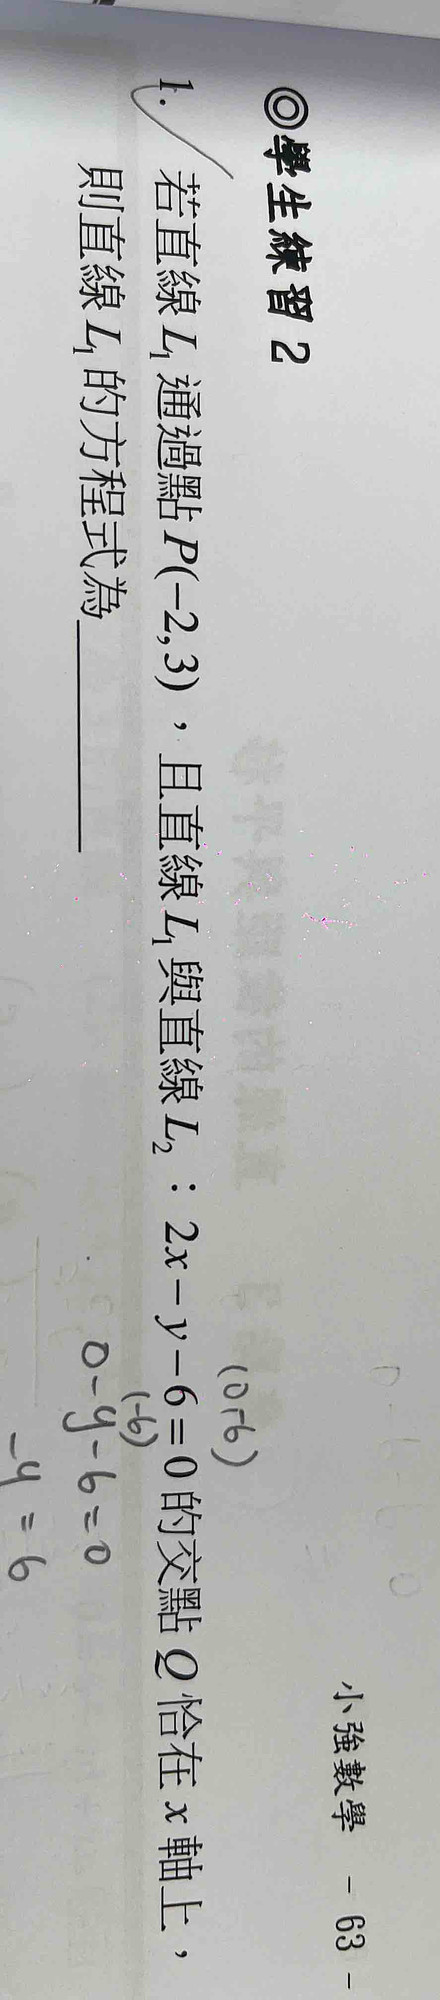 小強數學 - 63 -
◎學生練習 2
1. 若直線 L₁ 通過點 P(-2,3)，且直線 L₁ 與直線 L₂：2x-y-6=0 的交點 Q 恰在 x 軸上，
則直線 L₁ 的方程式為
(0,-6)
(-6)
0-y-6=0
-y=6